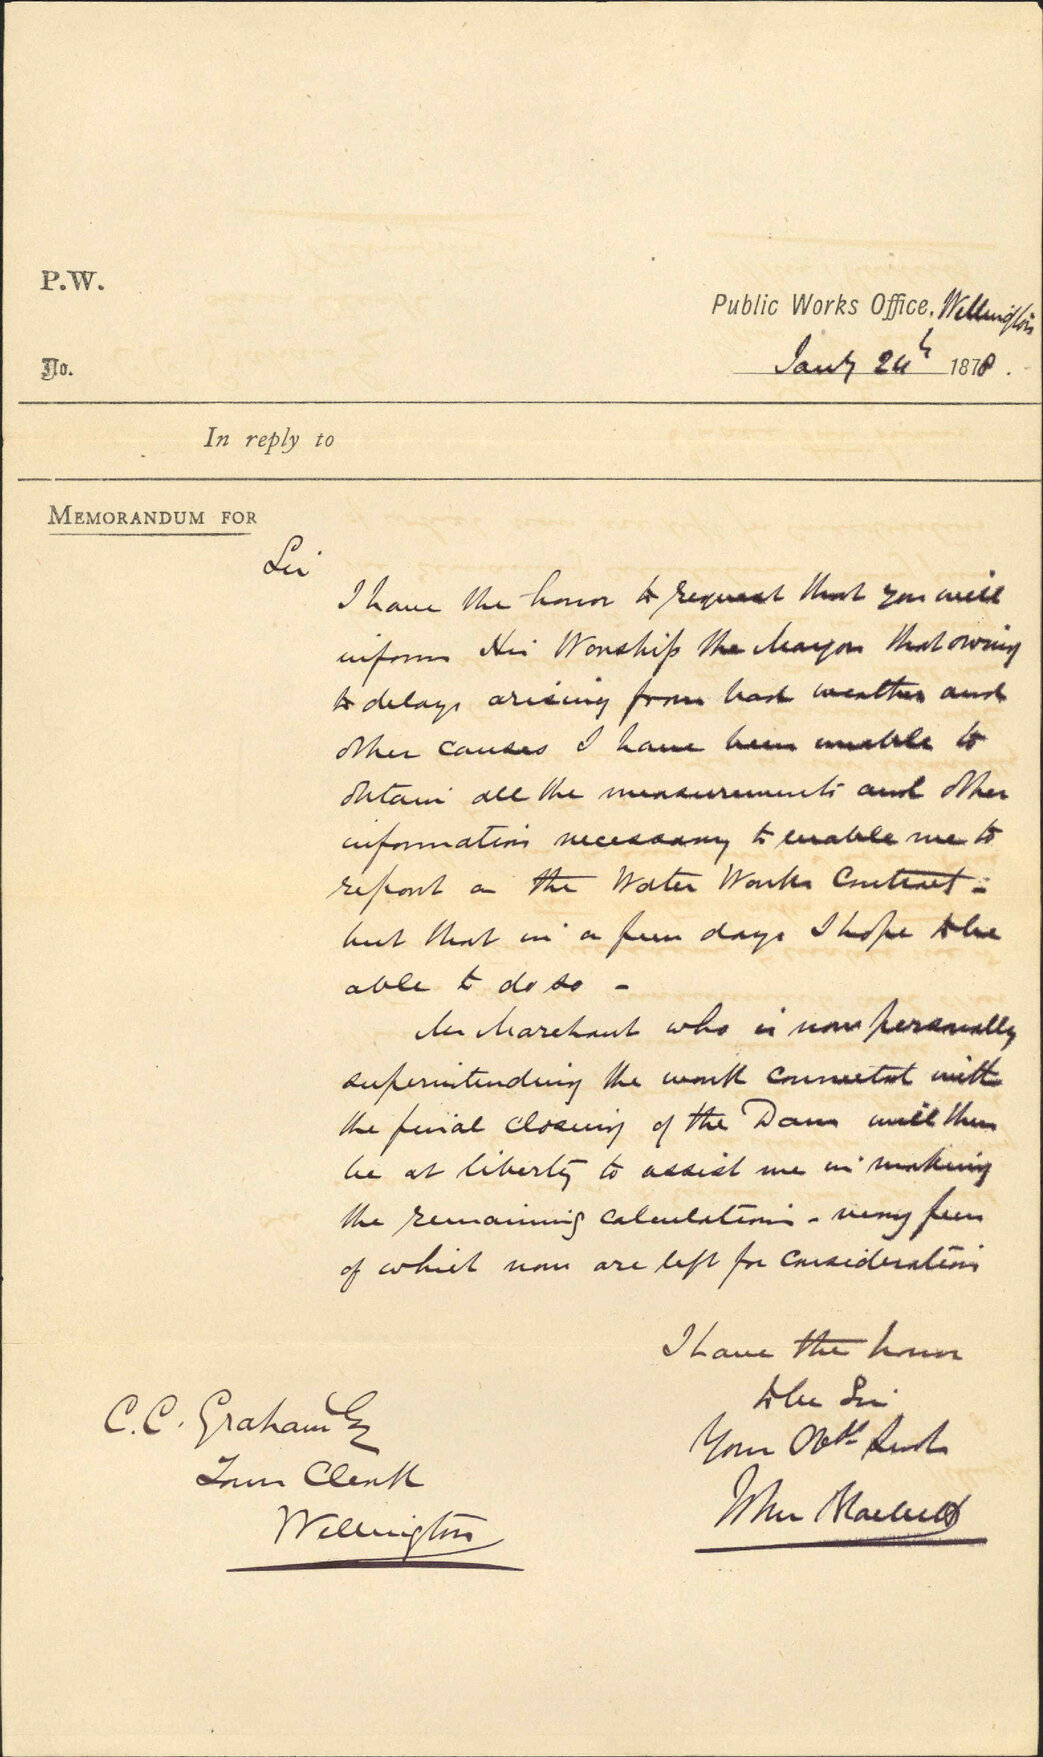 P.W.
Public Works Office, Wellington
No.
Jany 24th 1878.
In reply to
MEMORANDUM FOR
Sir
I have the honor to request that you will
inform His Worship the Mayor that owing
to delays arising from bad weather and
other causes I have been unable to
obtain all the measurements and other
information necessary to enable me to
report on the Water Works Contract -
but that in a few days I hope to be
able to do so -
Mr Marchant who is now personally
superintending the work connected with
the final closing of the Dam will then
be at liberty to assist me in making
the remaining calculations - very few
of which now are left for consideration
I have the honor
to be Sir
Your Obt Servt
John Blackett
C.C. Graham Esq
Town Clerk
Wellington